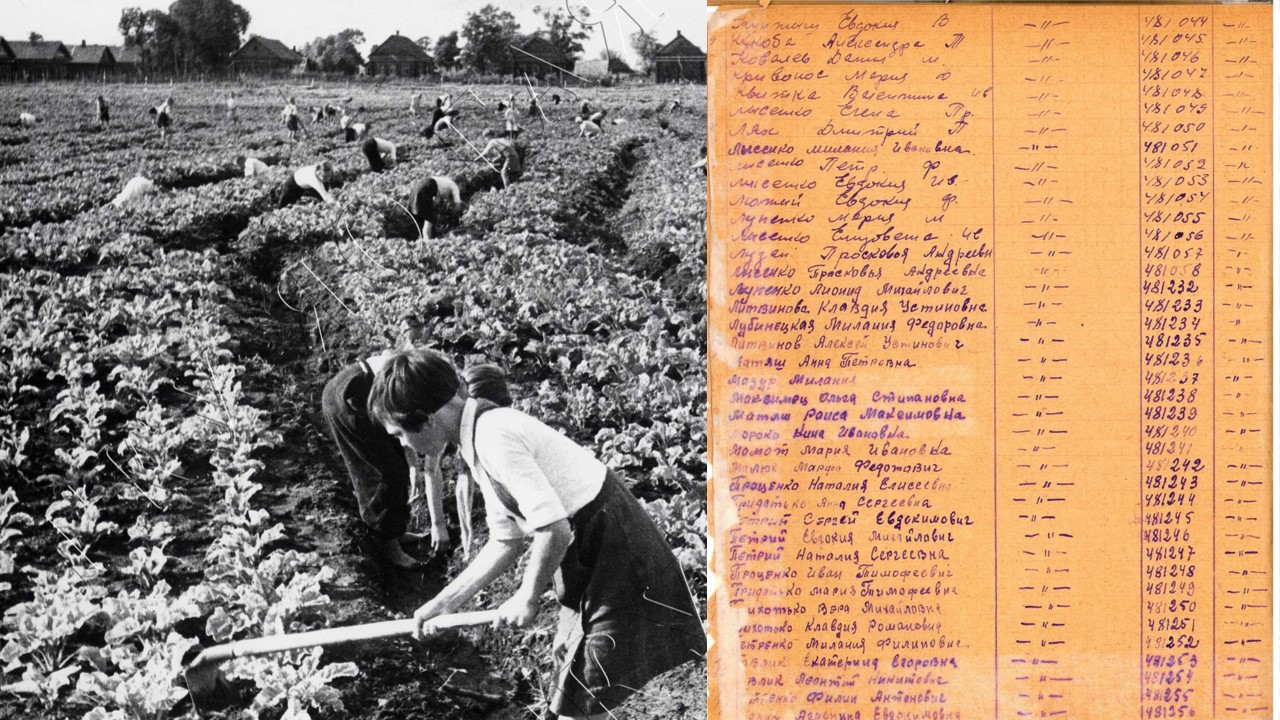 Евдокия В —"— 481044 —"—
Александра Т —"— 481045 —"—
Ковалев Данил М. —"— 481046 —"—
Кривонос Мария Ф —"— 481047 —"—
Квитка Валентина Ив —"— 481048 —"—
Лысенко Елена Пр. —"— 481049 —"—
Лях Дмитрий П —"— 481050 —"—
Лысенко Милания Ивановна —"— 481051 —"—
Лисенко Петр Ф —"— 481052 —"—
Лысенко Евдокия Ив —"— 481053 —"—
Лютий Евдокия Ф. —"— 481054 —"—
Лупенко Мария М —"— 481055 —"—
Лисенко Елизовета Ив —"— 481056 —"—
Просковья Андреевн —"— 481057 —"—
Лисенко Прасковья Андреевна —"— 481058 —"—
Луценко Лионид Михайлович —"— 481232 —"—
Литвинова Клавдия Устиновна —"— 481233 —"—
Лубинецкая Милания Федоровна —"— 481234 —"—
Литвинов Алексей Устинович —"— 481235 —"—
Матяш Анна Петровна —"— 481236 —"—
Мазур Милания —"— 481237 —"—
Максимец Ольга Стипановна —"— 481238 —"—
Матяш Раиса Максимовна —"— 481239 —"—
Нина Ивановна —"— 481240 —"—
Момот Мария Ивановна —"— 481241 —"—
Марфа Федотович —"— 481242 —"—
Проценко Наталия Елисеевна —"— 481243 —"—
Придатько Анна Сергеевна —"— 481244 —"—
Петрий Сергей Евдокимович —"— 481245 —"—
Петрий Евдокия Михайлович —"— 481246 —"—
Петрий Наталия Сергеевна —"— 481247 —"—
Проценко Иван Тимофеевич —"— 481248 —"—
Придатько Мария Тимофеевна —"— 481249 —"—
Вэра Михайловна —"— 481250 —"—
Клавдия Романовна —"— 481251 —"—
Милания Филипович —"— 481252 —"—
Екатерина Егоровна —"— 481253 —"—
Леонтий Никитович —"— 481254 —"—
Филип Антонович —"— 481255 —"—
Агрепина Евдокимовна —"— 481256 —"—